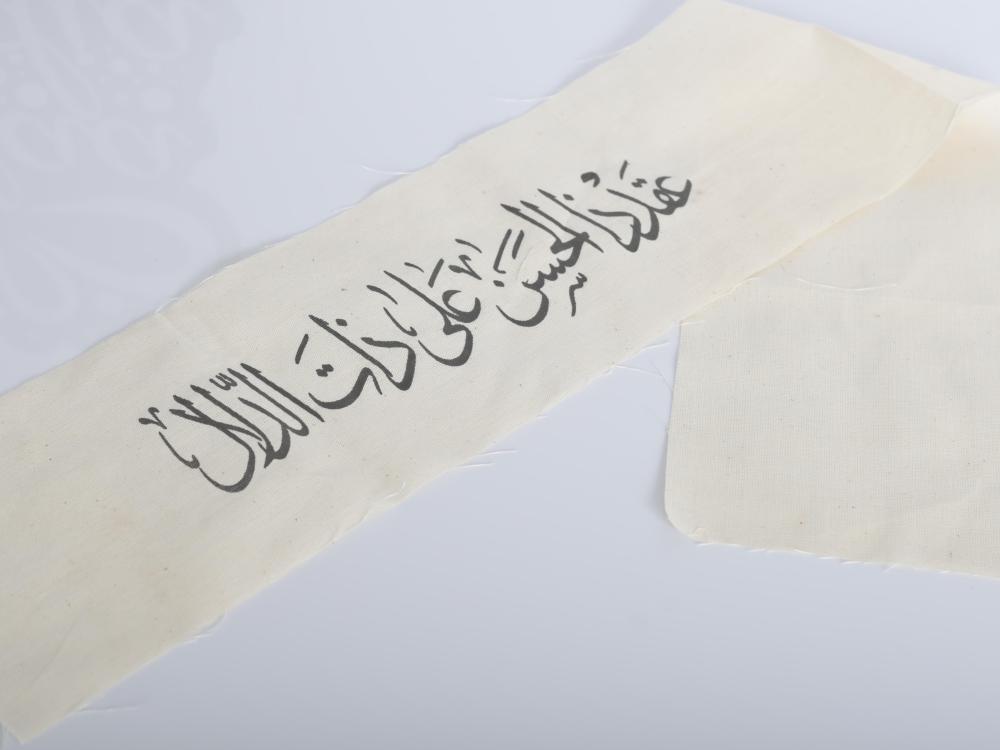 عقدوا الحسن على ذات الدلال